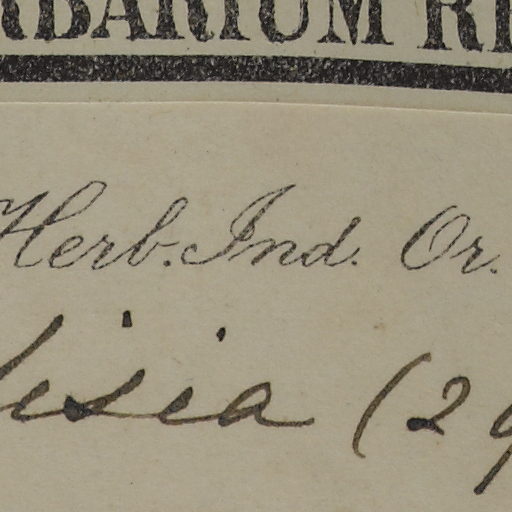 RBARIUM R
Herb. Ind. Or.
isia (29